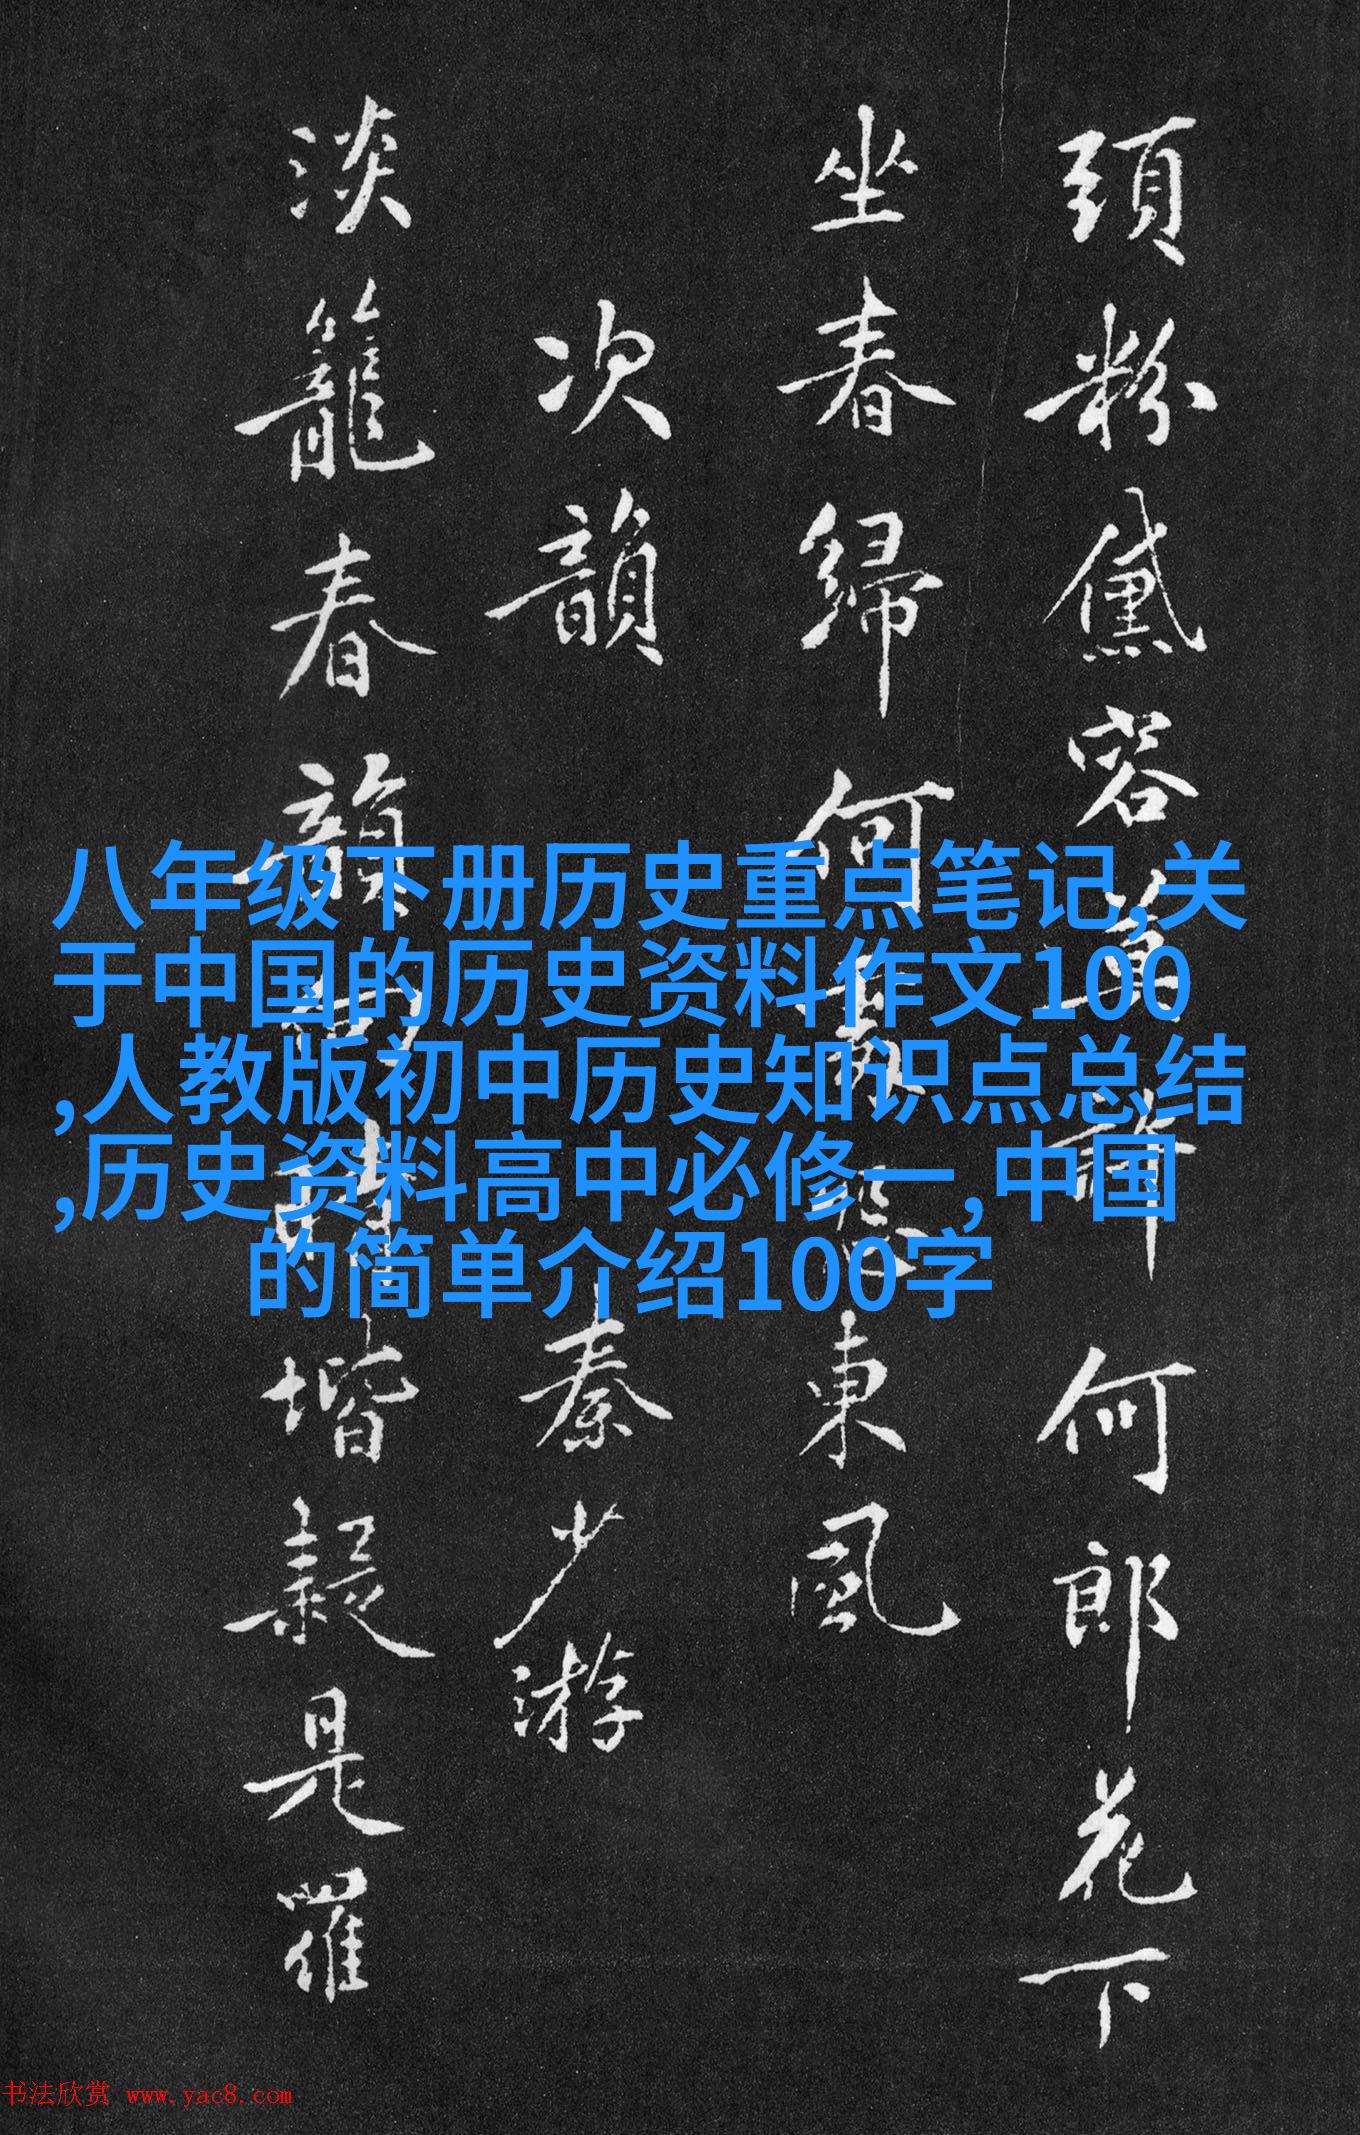 頭粉黛容何郎花下
坐春歸何東風
次韻秦少游
淡籠春韻堦疑是羅
八年级下册历史重点笔记,关
于中国的历史资料作文100
,人教版初中历史知识点总结
,历史资料高中必修一,中国
的简单介绍100字
书法欣赏 www.yac8.com